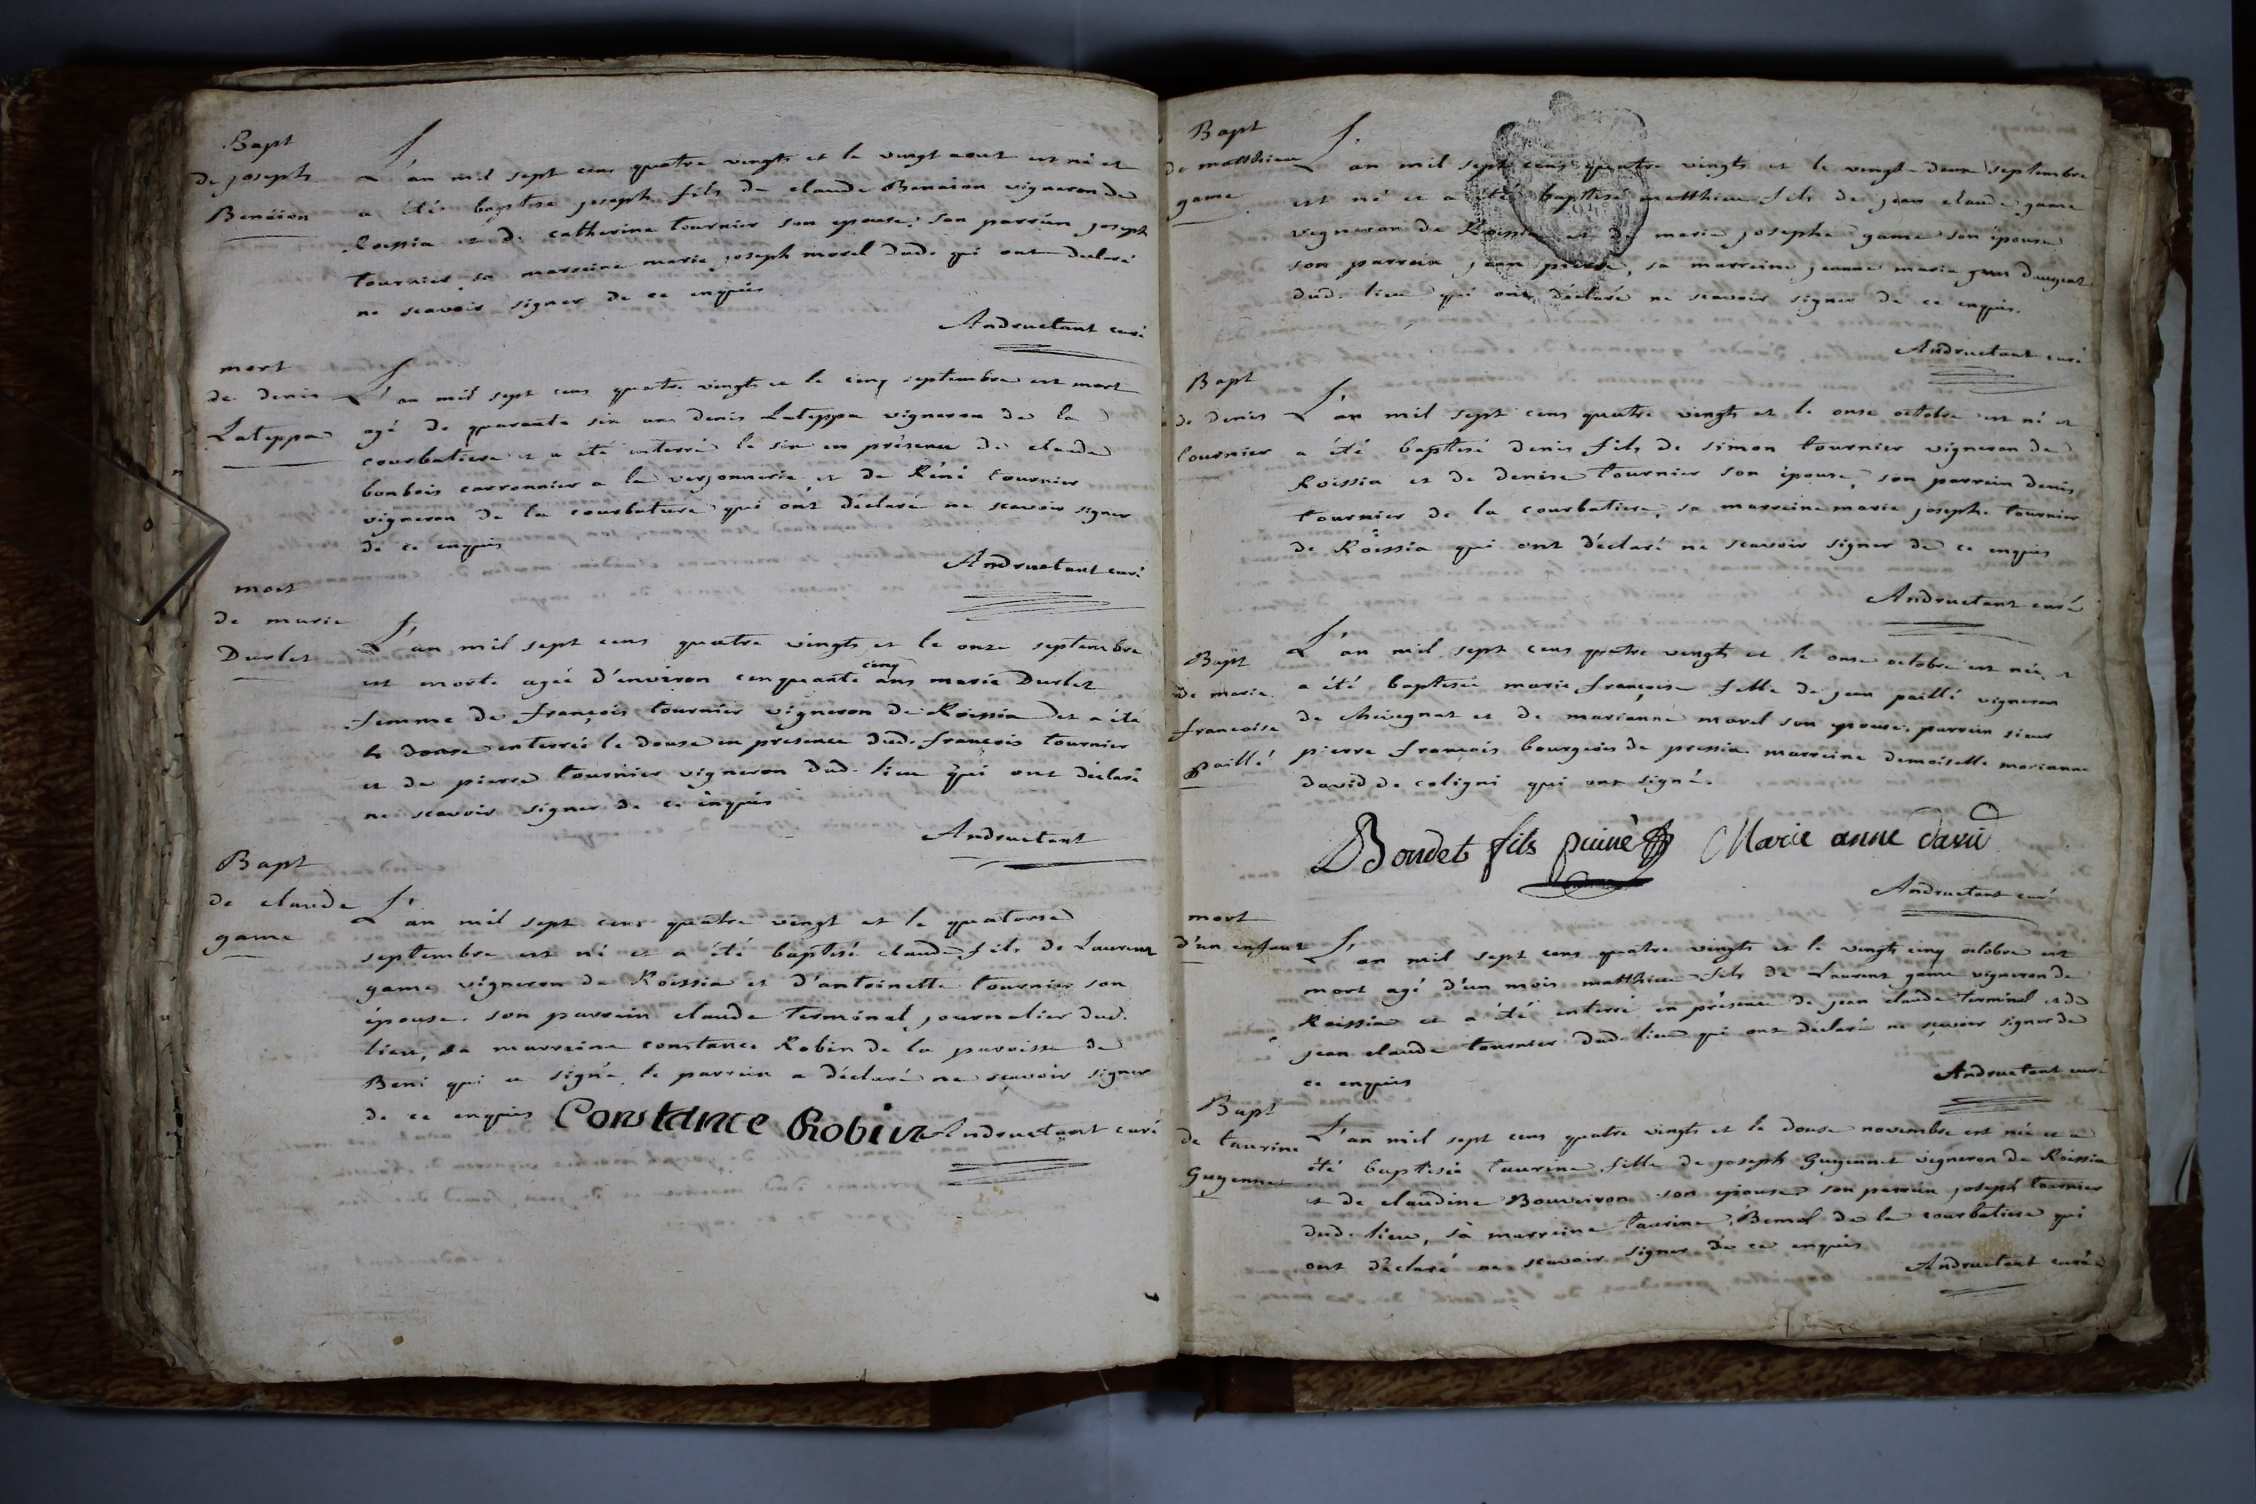 Bapt
de joseph
Benaion
L'an mil sept cens quatre vingts et le vingt aout est né et
a été baptisé joseph fils de claude Benaion vigneron de
Roissia et de catherine tournier son epouse, son parrein joseph
tournier, sa marreine marie joseph morel dud. qui ont declaré
ne scavoir signer de ce enquis
Andructant curé
mort
de denis
Lateppa
L'an mil sept cens quatre vingts et le cinq septembre est mort
agé de quarante six ans denis Lateppa vigneron de la
courbatiere et a été enterré le six en présence de claude
bonbois carronnier a la verjonnerie et de Réné tournier
vigneron de la courbature qui ont déclaré ne scavoir signer
de ce enquis
Andructant curé
mort
de marie
Durlet
L'an mil sept cens quatre vingts et le onze septembre
est morte agée d'environ cinquante cinq ans marie Durlet
femme de françois tournier vigneron de Roissia et a été
le douse enterrée le douse en presence dud. françois tournier
et de pierre tournier vigneron dud. lieu qui ont déclaré
ne scavoir signer de ce enquis
Andructant
Bapt
de claude
game
L'an mil sept cens quatre vingt et le quatorse
septembre est né et a été baptisé claude fils de Laurent
game vigneron de Roissia et d'antoinette tournier son
épouse. son parrein claude terminal journalier dud.
lieu, sa marreine constance Robin de la paroisse de
Beni qui a signé, le parrein a déclaré ne scavoir signer
de ce enquis Constance Robin Andructant curé
Bapt
de matthieu
game
L'an mil sept cens quatre vingts et le vingt deux septembre
est né et a été baptisé matthieu fils de jean claude game
vigneron de Roissia et de marie josephe game son épouse
son parrein jean pierre, sa marreine jeanne marie
dud. lieu qui ont déclaré ne scavoir signer de ce enquis.
Andructant curé
Bapt
de denis
tournier
L'an mil sept cens quatre vingts et le onse octobre est né et
a été baptisé denis fils de simon tournier vigneron de
Roissia et de denise tournier son épouse, son parrein denis
tournier de la courbatiere, sa marreine marie josephe tournier
de Roissia qui ont déclaré ne scavoir signer de ce enquis
Andructant curé
Bapt
de marie
francoise
paillé
L'an mil sept cens quatre vingts et le onse octobre est née et
a été baptisée marie françoise fille de jean paillé vigneron
de chevegnat et de marianne morel son epouse, parrein sieur
pierre françois bourgeois de pressia marreine demoiselle marianne
david de coligni qui ont signé.
Bondet fils puiné Marie anne david
Andructant curé
mort
d'un enfant
L'an mil sept cens quatre vingts et le vingt cinq octobre est
mort agé d'un mois matthieu fils de Laurent game vigneron de
Roissia et a été enterré en présence de jean claude terminal et de
jean claude tournier dud. lieu qui ont declaré ne scavoir signer de
ce enquis
Andructant curé
Bapt
de taurine
Guyennet
L'an mil sept cens quatre vingts et le douse novembre est née et a
été baptisée taurine fille de joseph Guyennet vigneron de Roissia
et de claudine Bouveiron son epouse, son parrein joseph tournier
dud. lieu, sa marreine taurine Bemol de la courbatiere qui
ont déclaré ne scavoir signer de ce enquis
Andructant curé